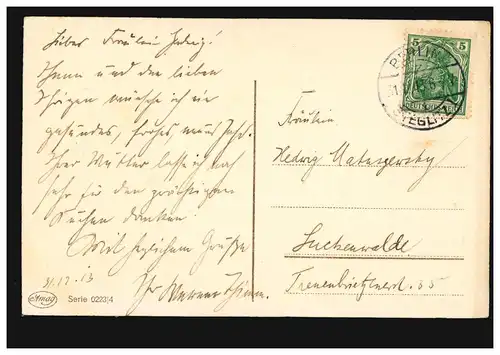 Liebes Fräulein Hedwig!
Ihnen und den lieben
Ihrigen wünsche ich ein
gesundes, frohes, neues Jahr.
Ihre Mutter lasse ich noch
sehr für den prächtigen
Kuchen danken.
Mit herzlichem Gruße
31.12.13
Ihr Werner
Amag
Serie 0223/4
5 5
BERLIN
STEGLITZ
Fräulein
Hedwig
Luckenwalde
Treuenbrietzenerst. 35